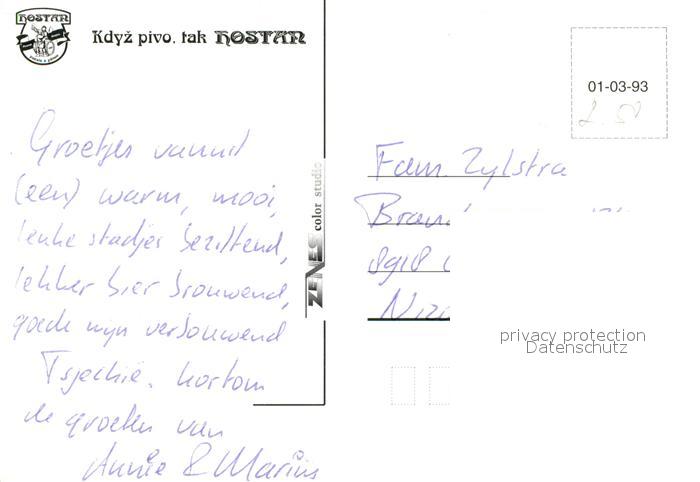 HOSTAN
Když pivo, tak HOSTAN
01-03-93
Groetjes vanuit
(een) warm, mooi,
leuke stadjes bezittend,
lekker bier brouwend,
goede wijn verbouwend
Tsjechië. Kortom
de groeten van
Annie & Marius
ZENES color studio
Fam. Zylstra
Bran
8918
privacy protection
Datenschutz